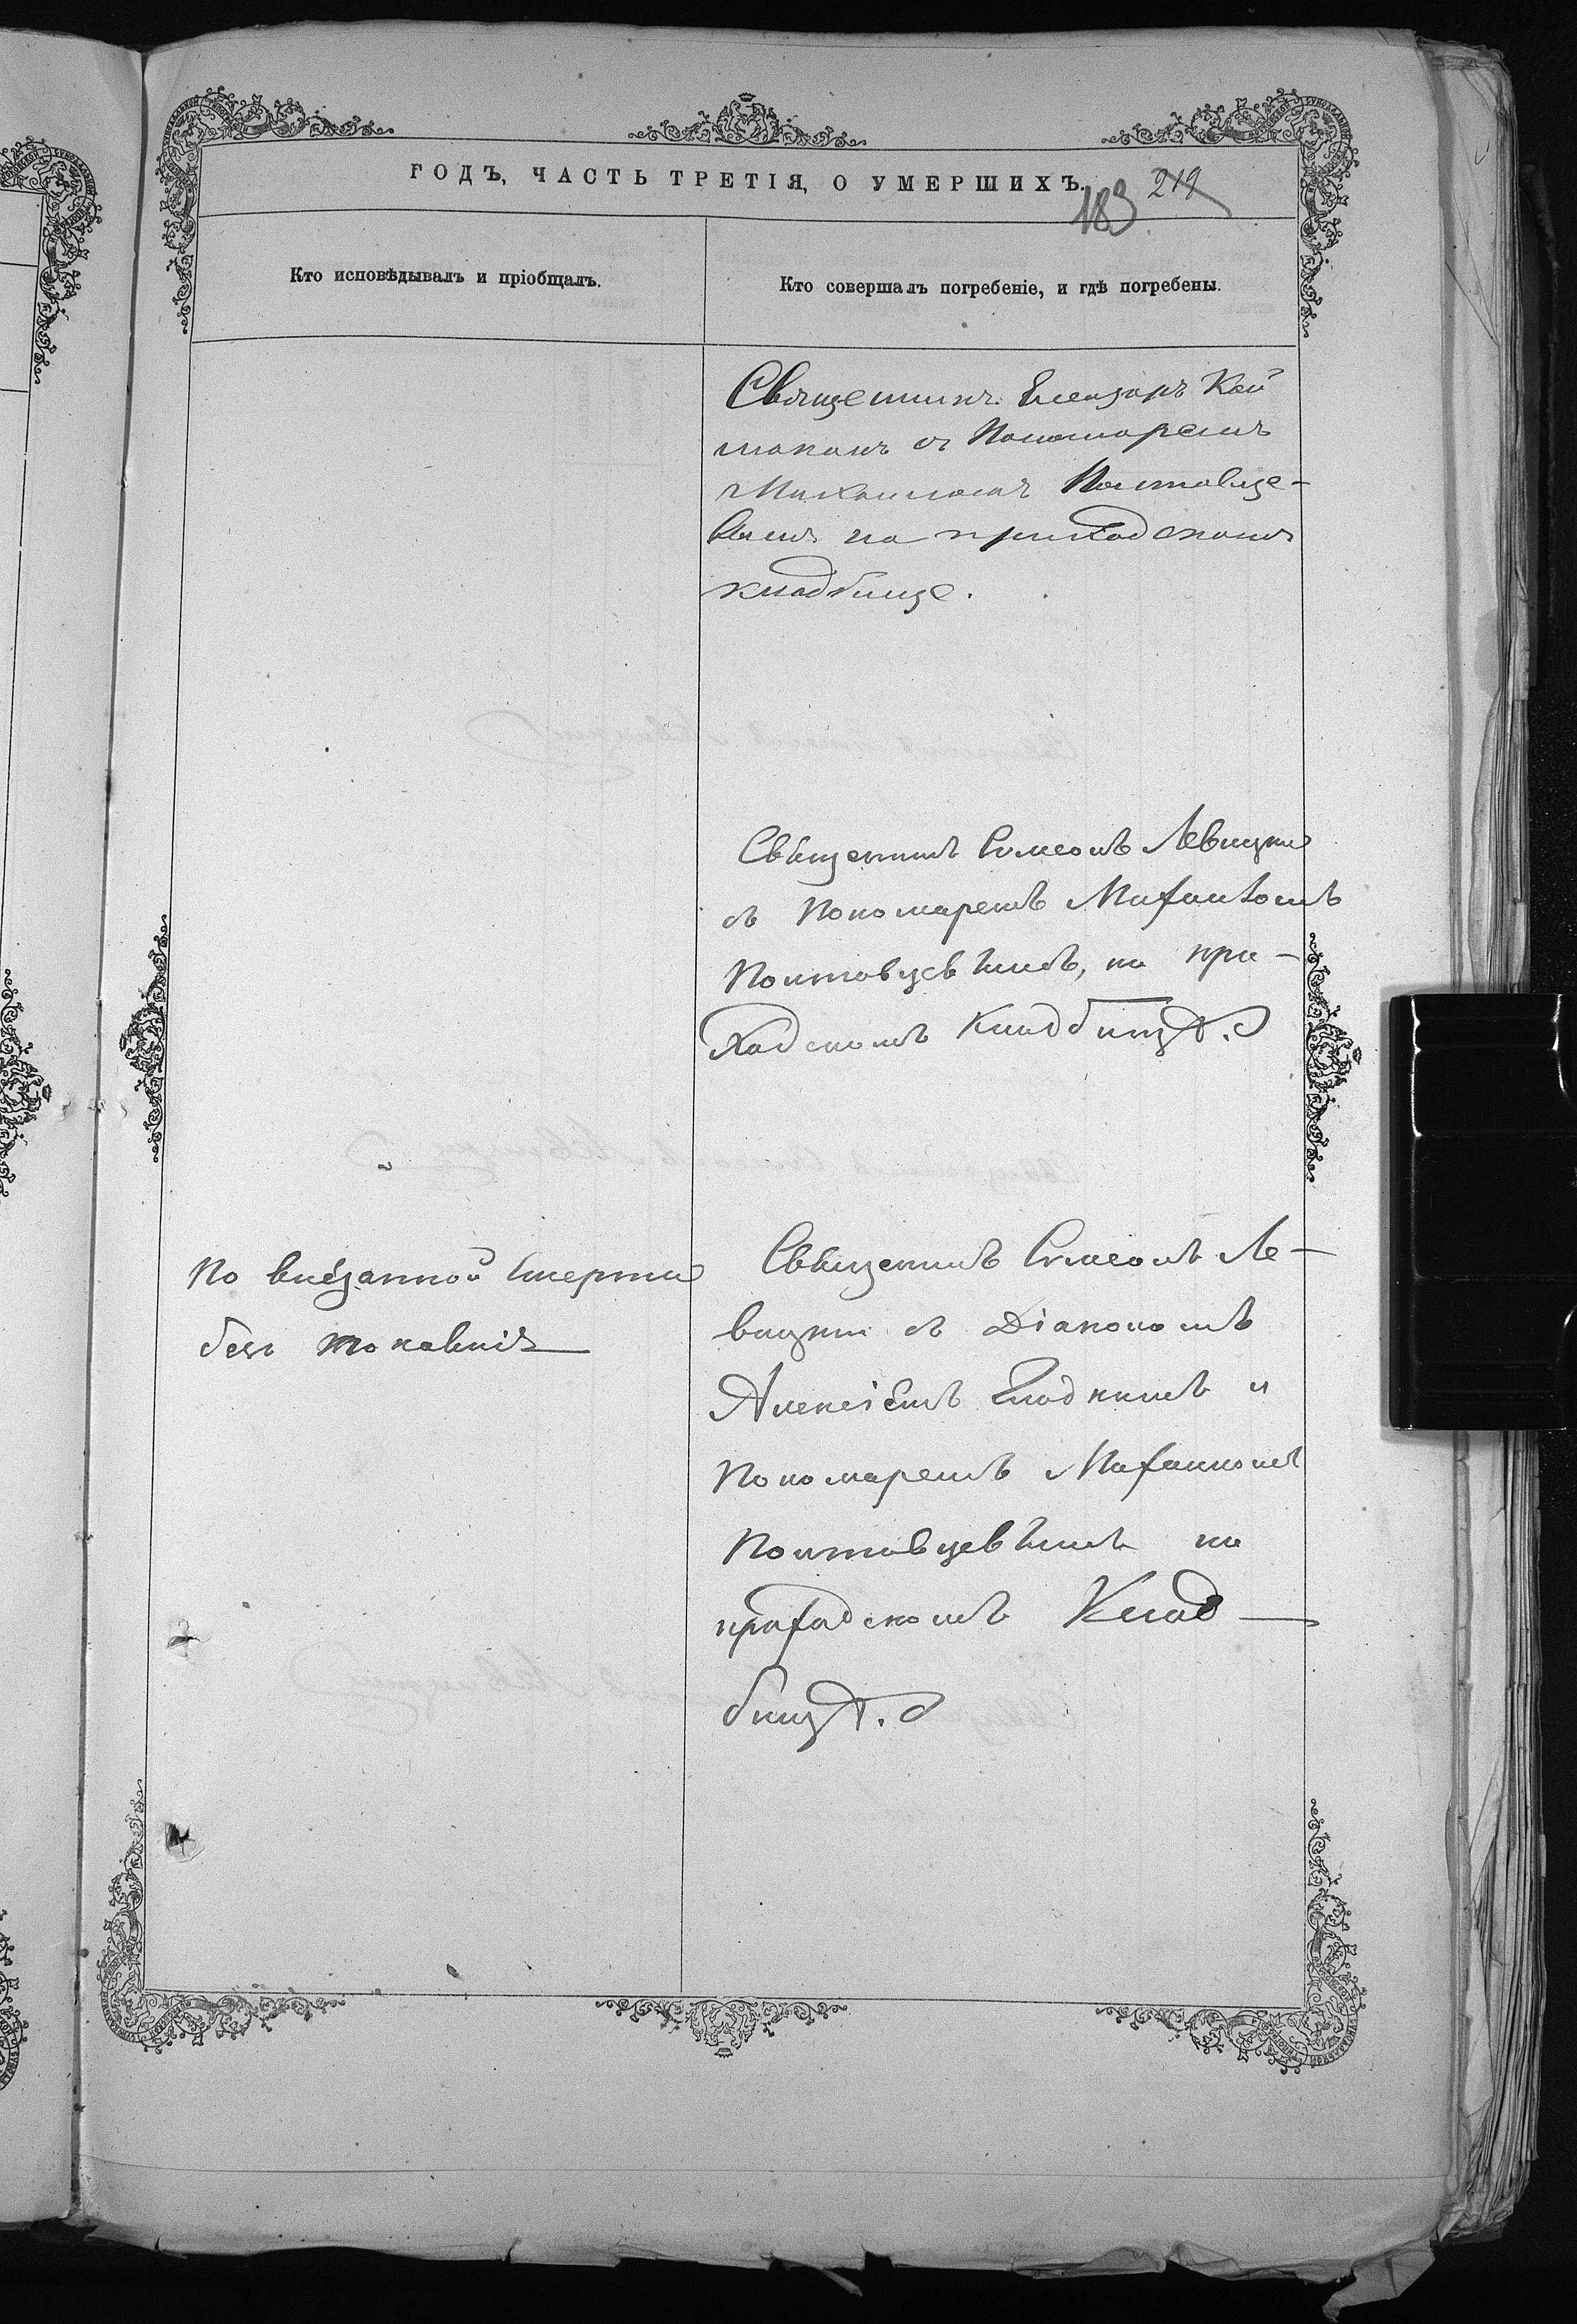 ГОДЪ, ЧАСТЬ ТРЕТІЯ, О УМЕРШИХЪ.
219
183
Кто исповѣдывалъ и пріобщалъ.
Кто совершалъ погребеніе, и гдѣ погребены.
Священникъ Елеазаръ Кай
мақанъ съ Пономаремъ
Михаиломъ Полтавце-
вымъ на приходскомъ
кладбище.
Священникъ Симеонъ Левицкий
съ Пономаремъ Михаиломъ
Полтавцевымъ, на при-
ходскомъ кладбищѣ.
По внезапной смерти
безъ
Священникъ Симеонъ Ле-
вицкий съ Діакономъ
Алексіемъ Гладкимъ и
Пономаремъ Михаиломъ
Полтавцевымъ на
приходскомъ Клад-
бищѣ.